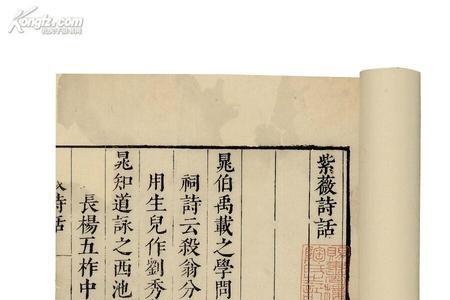 Kongfz.com
孔夫子旧书网
紫薇詩話
晁伯禹載之學問
祠詩云殺翁分
用生兒作劉秀
晁知道詠之西池
長楊五柞中
詩話